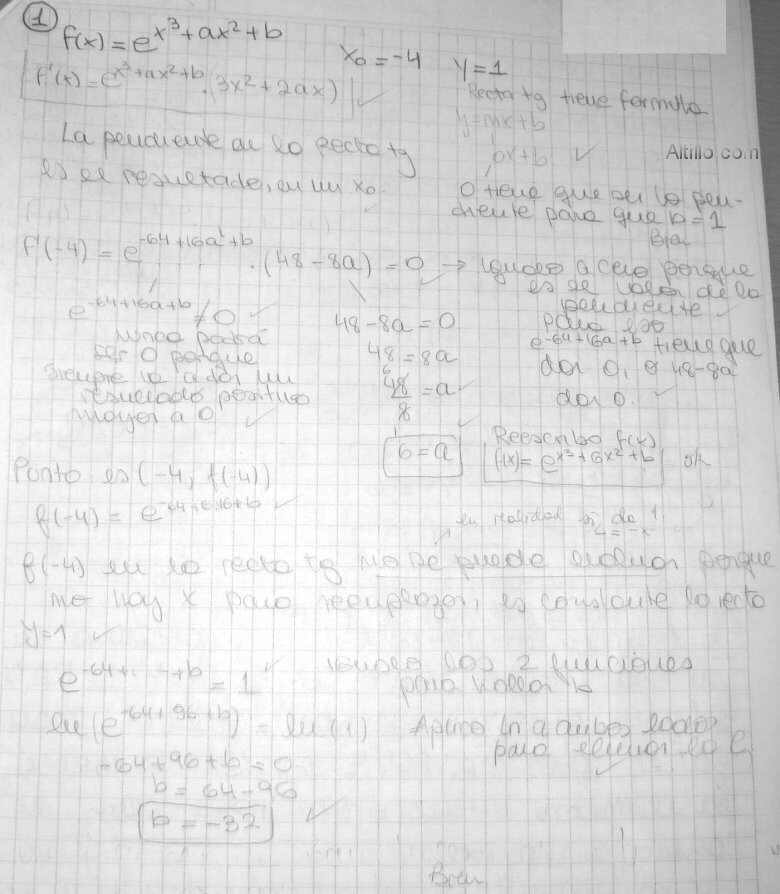 1
f(x) = e^x³+ax²+b
x₀ = -4 y = 1
f'(x) = e^x³+ax²+b · (3x² + 2ax)
Recta tg tiene formula
y = mx + b
La pendiente de la recta tg
0x + b
Altillo.com
es el resultado, en un x₀
0 tiene que ser la pen-
diente para que b = 1
Bien
f'(-4) = e^-64+16a+b · (48 - 8a) = 0 → igualo a cero porque
es el valor de la
pendiente
e^-64+16a+b ≠ 0
nunca podrá
ser 0 porque
siempre va a dar un
resultado positivo
mayor a 0
48 - 8a = 0
48 = 8a
6
48/8 = a
6 = a
para eso
e^-64+16a+b tiene que
dar 0, o 48-8a
dar 0.
Reescribo f(x)
f(x) = e^x³+6x²+b
ok
Punto es (-4, f(-4))
f(-4) = e^-64+6.16+b
en realidad si da 1
f(-4) en la recta tg no se puede evaluar porque
no hay x para reemplazar, es constante la recta
y = 1
e^-64+...+b = 1
igualo las 2 funciones
para hallar b
ln (e^-64+96+b) = ln (1)
Aplico ln a ambos lados
para eliminar la e
-64+96+b = 0
b = 64-96
b = -32
Bien